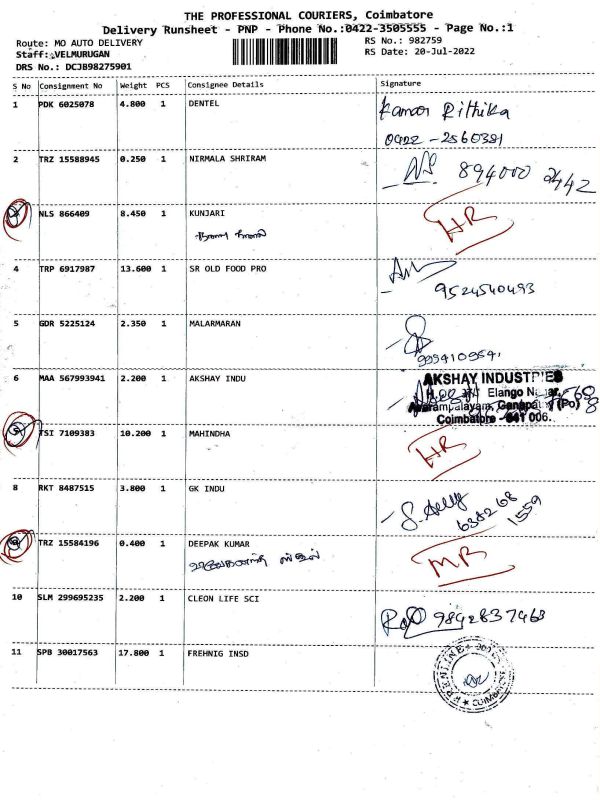 THE PROFESSIONAL COURIERS, Coimbatore
Delivery Runsheet - PNP - Phone No.:0422-3505555 - Page No.:1
Route: MO AUTO DELIVERY RS No.: 982759
Staff: VELMURUGAN RS Date: 20-Jul-2022
DRS No.: DCJB98275901
S No Consignment No Weight PCS Consignee Details Signature
1 PDK 6025078 4.800 1 DENTEL Rithika
0422 - 2560381
2 TRZ 15588945 0.250 1 NIRMALA SHRIRAM NS. 894000 2442
NLS 866409 8.450 1 KUNJARI HR
4 TRP 6917987 13.600 1 SR OLD FOOD PRO
9524540493
5 GDR 5225124 2.350 1 MALARMARAN
6 MAA 567993941 2.200 1 AKSHAY INDU AKSHAY INDUSTRIES
Elango
Coimbatore - 641 006.
TSI 7109383 10.200 1 MAHINDHA HR
8 RKT 8487515 3.800 1 GK INDU
638268
1559
TRZ 15584196 0.400 1 DEEPAK KUMAR MR
10 SLM 299695235 2.200 1 CLEON LIFE SCI 9842837468
11 SPB 30017563 17.800 1 FREHNIG INSD